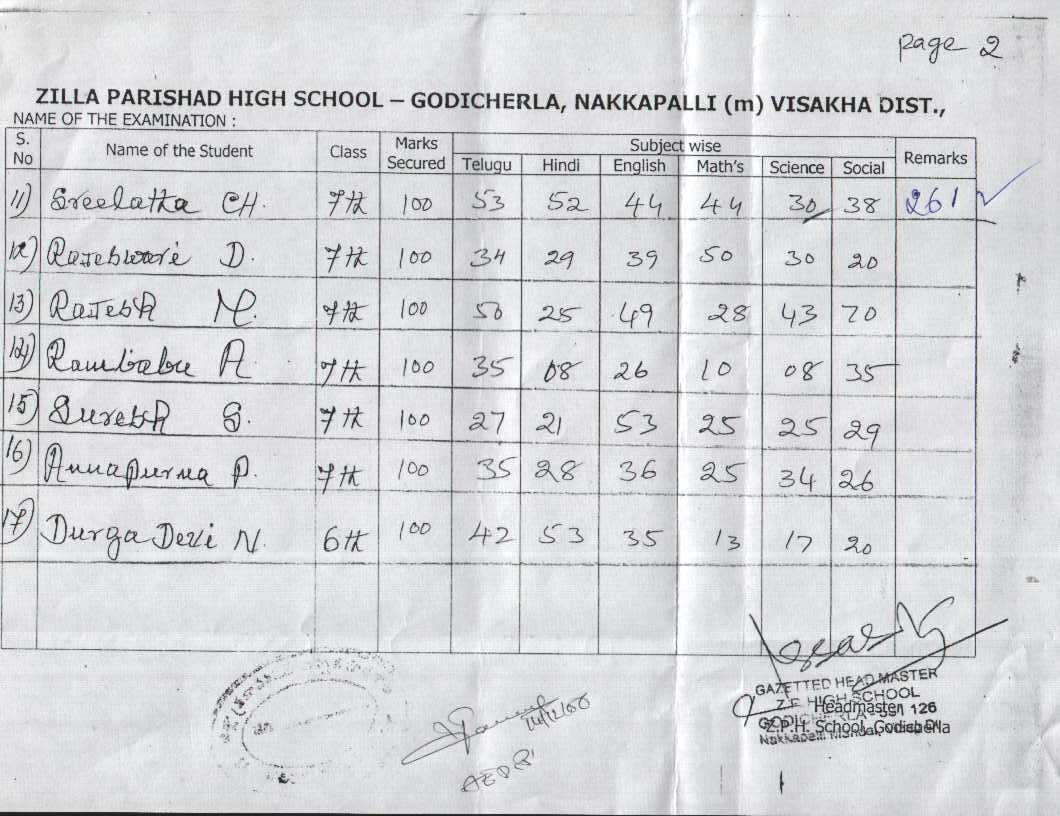 page 2
ZILLA PARISHAD HIGH SCHOOL – GODICHERLA, NAKKAPALLI (m) VISAKHA DIST.,
NAME OF THE EXAMINATION :
S. No Name of the Student Class Marks Secured Subject wise Remarks
Telugu Hindi English Math's Science Social
11) Sreelatha CH. 7th 100 53 52 44 44 30 38 261
12) Rajeshwari D. 7th 100 34 29 39 50 30 20
13) Rajesh M. 7th 100 50 25 49 28 43 70
14) Rambabu A. 7th 100 35 08 26 10 08 35
15) Suresh S. 7th 100 27 21 53 25 25 29
16) Annapurna P. 7th 100 35 28 36 25 34 26
17) Durga Devi N. 6th 100 42 53 35 13 17 20
GAZETTED HEAD MASTER
Z.P. HIGH SCHOOL
Headmaster 126
GODICHERLA
Z.P.H. School, Godicherla
Nakkapalli Mandal,
14/12/06